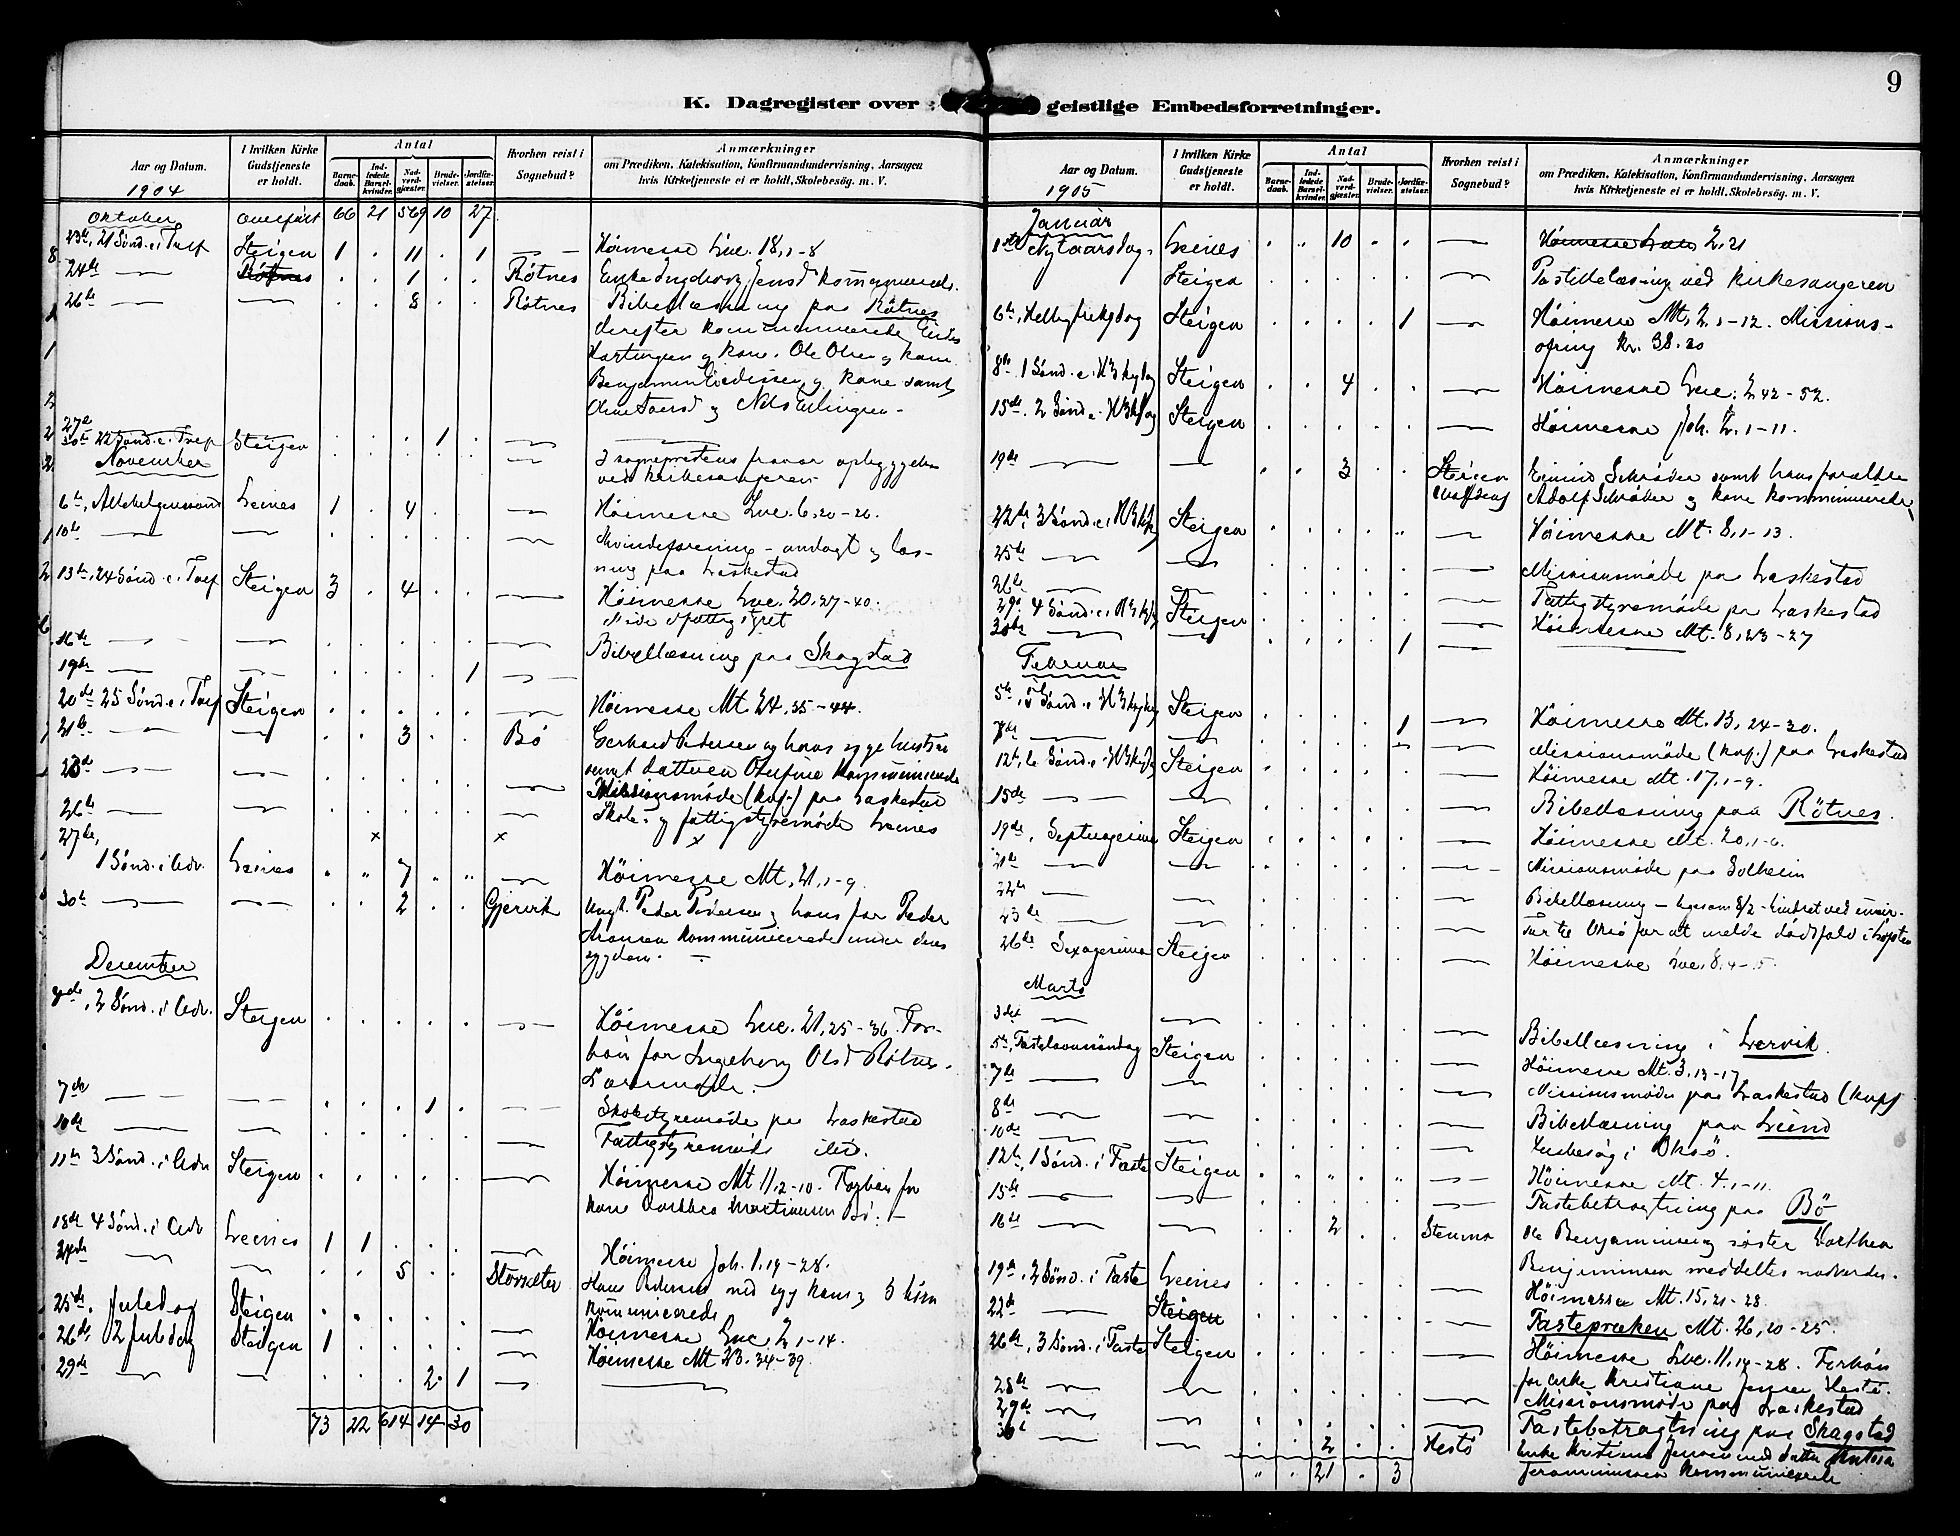 9
K. Dagregister over geistlige Embedsforretninger.
Aar og Datum. 1904
I hvilken Kirke Gudstjeneste er holdt.
Antal
Barnedaab. Indledede Barselkvinder. Nadverdgjæster. Brudevielser. Jordfæstelser.
Hvorhen reist i Sognebud?
Anmærkninger
om Prædiken, Katekisation, Konfirmandundervisning, Aarsagen
hvis Kirketjeneste ei er holdt, Skolebesøg, m. V.
Oktober overført 66 21 569 10 27
23de, 21 Sønd. e. Tref Steigen 1 . 11 . 1 Høimesse Luc. 18, 1-8
24de Røtnes . . 1 . . Røtnes Enke Ingeborg Jensd kommunicerede.
26de . . 8 . . Røtnes Bibellæsning paa Røtnes
derefter kommunicerede
og kone. Ole Olsen og kone
Benjamin og kone samt
og Nils
27de 1
30te 22 Sønd. e. Tref Steigen
I sogneprestens fravær opbyggelse
ved kirkesangeren
November
6te, Allehelgenssønd Leines 1 . 4 . . Høimesse Luc. 6, 20-26.
10de Kvindeforening - andagt og læsning paa Laskestad
13de, 24 Sønd. e. Tref Steigen 3 . 4 . . Høimesse Luc. 20, 27-40.
16de Bibellæsning paa Skagstad
19de 1
20de 25 Sønd. e. Tref Steigen Høimesse Mt. 24, 35-44.
21de . . 3 . . Bø Gerhard Pedersen og hans syge hustru
samt datteren Olufine kommunicerede
23de Missionsmøde (kap.) paa Laskestad
26de Skole- og fattigstyremøde Leines
27de, × × ×
1 Sønd. i Adv. Leines . „ 7 . „ Høimesse Mt. 21, 1-9.
30te . . 2 . . Gjervik Ungk. Peder Pedersen og hans far Peder
Aronsen kommunicerede under deres
sygdom.
December
4de, 2 Sønd. i Adv. Steigen Høimesse Luc. 21, 25-36. Forbøn for Ingeborg Olsd Røtnes.
7de 1 Skolestyremøde paa Laskestad
10de Fattigstyremøde ibid.
11te 3 Sønd. i Adv Steigen Høimesse Mt 11, 2-10. Forbøn for
kone Dorthea Martinussen Bø.
18de 4 Sønd. i Adv Leines 1 1 Høimesse Joh. 1, 19-28.
5 Storsæter Hans Pedersen med syg kone og 3 børn
kommunicerede
25de. Juledag Steigen Høimesse Luc. 2, 1-14.
26de, 2 Juledag Steigen 1 Høimesse Mt 23, 34-39.
29de 2 1
73 22 614 14 30
Aar og Datum. 1905
I hvilken Kirke Gudstjeneste er holdt.
Antal
Barnedaab. Indledede Barselkvinder. Nadverdgjæster. Brudevielser. Jordfæstelser.
Hvorhen reist i Sognebud?
Anmærkninger
om Prædiken, Katekisation, Konfirmandundervisning, Aarsagen
hvis Kirketjeneste ei er holdt, Skolebesøg, m. V.
Januar
1ste Nytaarsdag. Leines . „ 10 . . Høimesse Luc 2, 21
Steigen Postillelæsning ved kirkesangeren
6te, Hellig 3 kgdag Steigen . . . . 1 Høimesse Mt. 2, 1-12. Missionsofring kr. 38.20
8de 1 Sønd. e. H3kgdag Steigen . . 4 . . Høimesse Luc. 2, 42-52.
15de. 2 Sønd. e. H3kgdag Steigen Høimesse Joh. 2, 1-11.
19de . . 3 . . Steigen Einind Schrøder samt hans forældre
Adolf Schrøder og kone kommunicerede
22de, 3 Sønd. e. H3kg Steigen Høimesse Mt. 8, 1-13.
25de Missionsmøde paa Laskestad
26de Fattigstyremøde paa Laskestad
29de 4 Sønd. e. H3kg Steigen Høimesse Mt. 8, 23-27
30te 1
Februar
5te, 5 Sønd. e. H3kgdag Steigen Høimesse Mt. 13, 24-30.
7de 1 Missionsmøde (kap.) paa Laskestad
12te, 6 Sønd. e. H3kgdg Steigen Høimesse Mt. 17, 1-9.
15de Bibellæsning paa Røtnes.
19de, Septuagesima Steigen Høimesse Mt. 20, 1-6.
21de Missionsmøde paa Solheim
22de Bibellæsning - ligesom 8/2 - hindret ved uveir.
23de Tur til Oksø for at melde dødsfald i Lofoten
26de Sexagesima Steigen Høimesse Luc. 8, 4-15.
Marts
3die Bibellæsning i Lervik.
5te, Fastelavnssøndag Steigen Høimesse Mt. 3, 13-17
7de Missionsmøde paa Laskestad (kap)
8de Bibellæsning paa Leund
10de Husbesøg i Oksø.
12te, 1 Sønd. i Faste Steigen Høimesse Mt. 4, 1-11.
15de Fastebetragtning paa Bø
16de 2 Stenmo Ole Benjaminsen og søster Dorthea
Benjaminsen meddeltes nadverden.
19de, 2 Sønd. i Faste Leines Høimesse Mt. 15, 21-28.
22de Steigen Fastepræken Mt. 26, 20-25.
26de, 3 Sønd. i Faste Steigen Høimesse Luc. 11, 14-28. Forbøn
for enke Kristiane Jensen Hestø.
28de Missionsmøde paa Laskestad
29de Fastebetragtning paa Skagstad
30te 2 Hestø Enke Kristiane Jensen med datter Antona
Jeronimussen kommunicerede
„ . 21 . 3